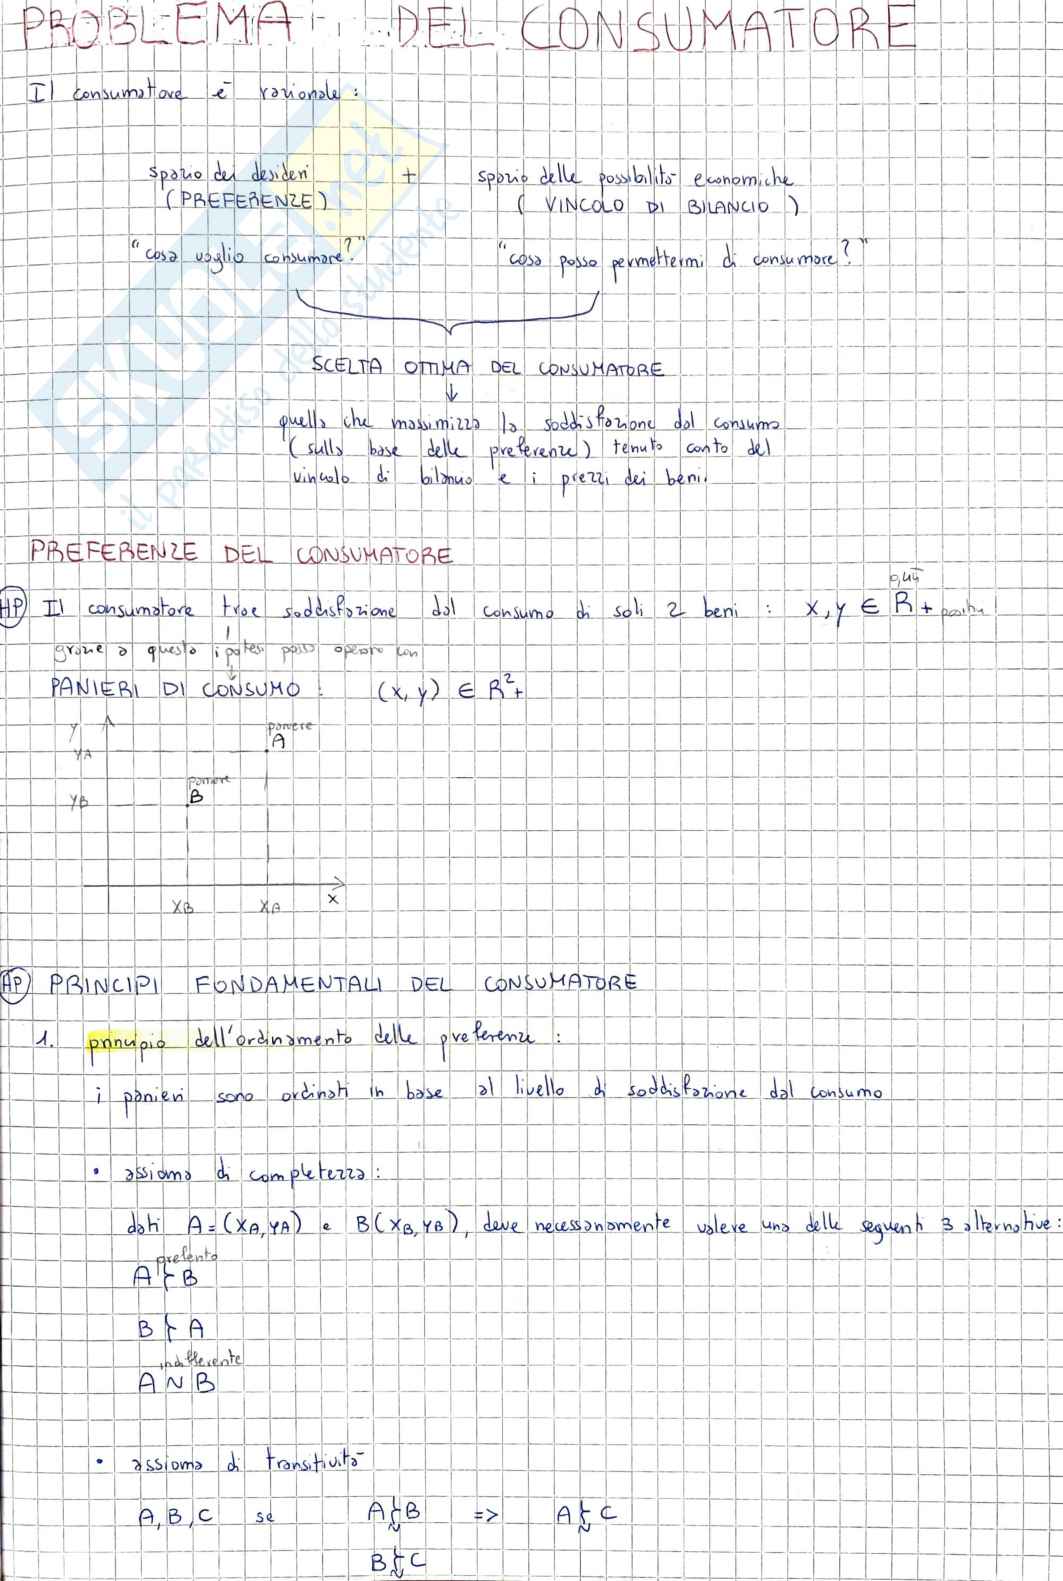 PROBLEMA DEL CONSUMATORE
Il consumatore è razionale :
spazio dei desideri + spazio delle possibilità economiche
(PREFERENZE) ( VINCOLO DI BILANCIO )
"cosa voglio consumare?" "cosa posso permettermi di consumare?"
SCELTA OTTIMA DEL CONSUMATORE
↓
quella che massimizza la soddisfazione dal consumo
(sulla base delle preferenze) tenuto conto del
vincolo di bilancio e i prezzi dei beni.
PREFERENZE DEL CONSUMATORE
HP Il consumatore trae soddisfazione dal consumo di soli 2 beni : x, y ∈ R+
grazie a questa ipotesi posso operare con
PANIERI DI CONSUMO : (x, y) ∈ R²+
y
yA
paniere
A
paniere
yB
B
xB xA x
HP PRINCIPI FONDAMENTALI DEL CONSUMATORE
1. principio dell'ordinamento delle preferenze :
i panieri sono ordinati in base al livello di soddisfazione dal consumo
• assioma di completezza :
dati A=(xA, yA) e B(xB, yB), deve necessariamente valere una delle seguenti 3 alternative :
preferito
A ≻ B
B ≻ A
indifferente
A ∼ B
• assioma di transitività
A, B, C se A ≿ B => A ≿ C
B ≿ C
SKUOLA.net
il paradiso dello studente